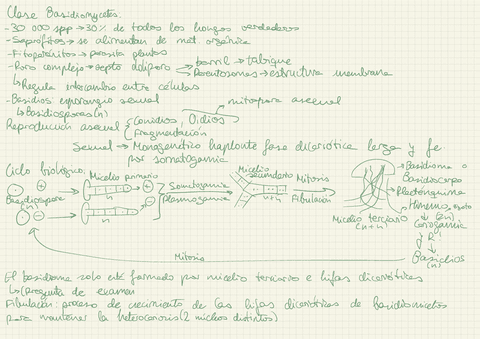 Clase Basidiomycetes:
-30 000 spp → 30% de todos los hongos verdaderos
-Saprófitos → se alimentan de mat. orgánica
-Fitoparásitos → parasita plantas
-Poro complejo → septo doliporo → barril → tabique
→ Parentosomas → estructura membrana
↳ Regula intercambio entre células
-Basidios: esporangio sexual
↳ Basidiosporas (n)
mitospora asexual
Reproducción asexual { Conidios, Oidios
Fragmentación
Sexual → Monogenético haplonte fase dicariótica larga y fe
por somatogamia
Ciclo biológico:
Micelio primario
Basidiospora
(n)
+
-
n
n
+
-
Somatogamia
Plasmogamia
Micelio
secundario
n+n
Mitosis
Fibulación
Micelio terciario
(n+n)
→ Basidioma o
Basidiocarpo
→ Plecténquima
→ Himenio,
(2n)
Cariogamia
R!
Basidios
(n)
Mitosis
El basidioma solo esté formado por micelio terciario e hifas dicarióticas
↳ (pregunta de examen
Fibulación: proceso de crecimiento de las hifas dicarióticas de basidiomicetos
para mantener la heterocariosis (2 núcleos distintos)